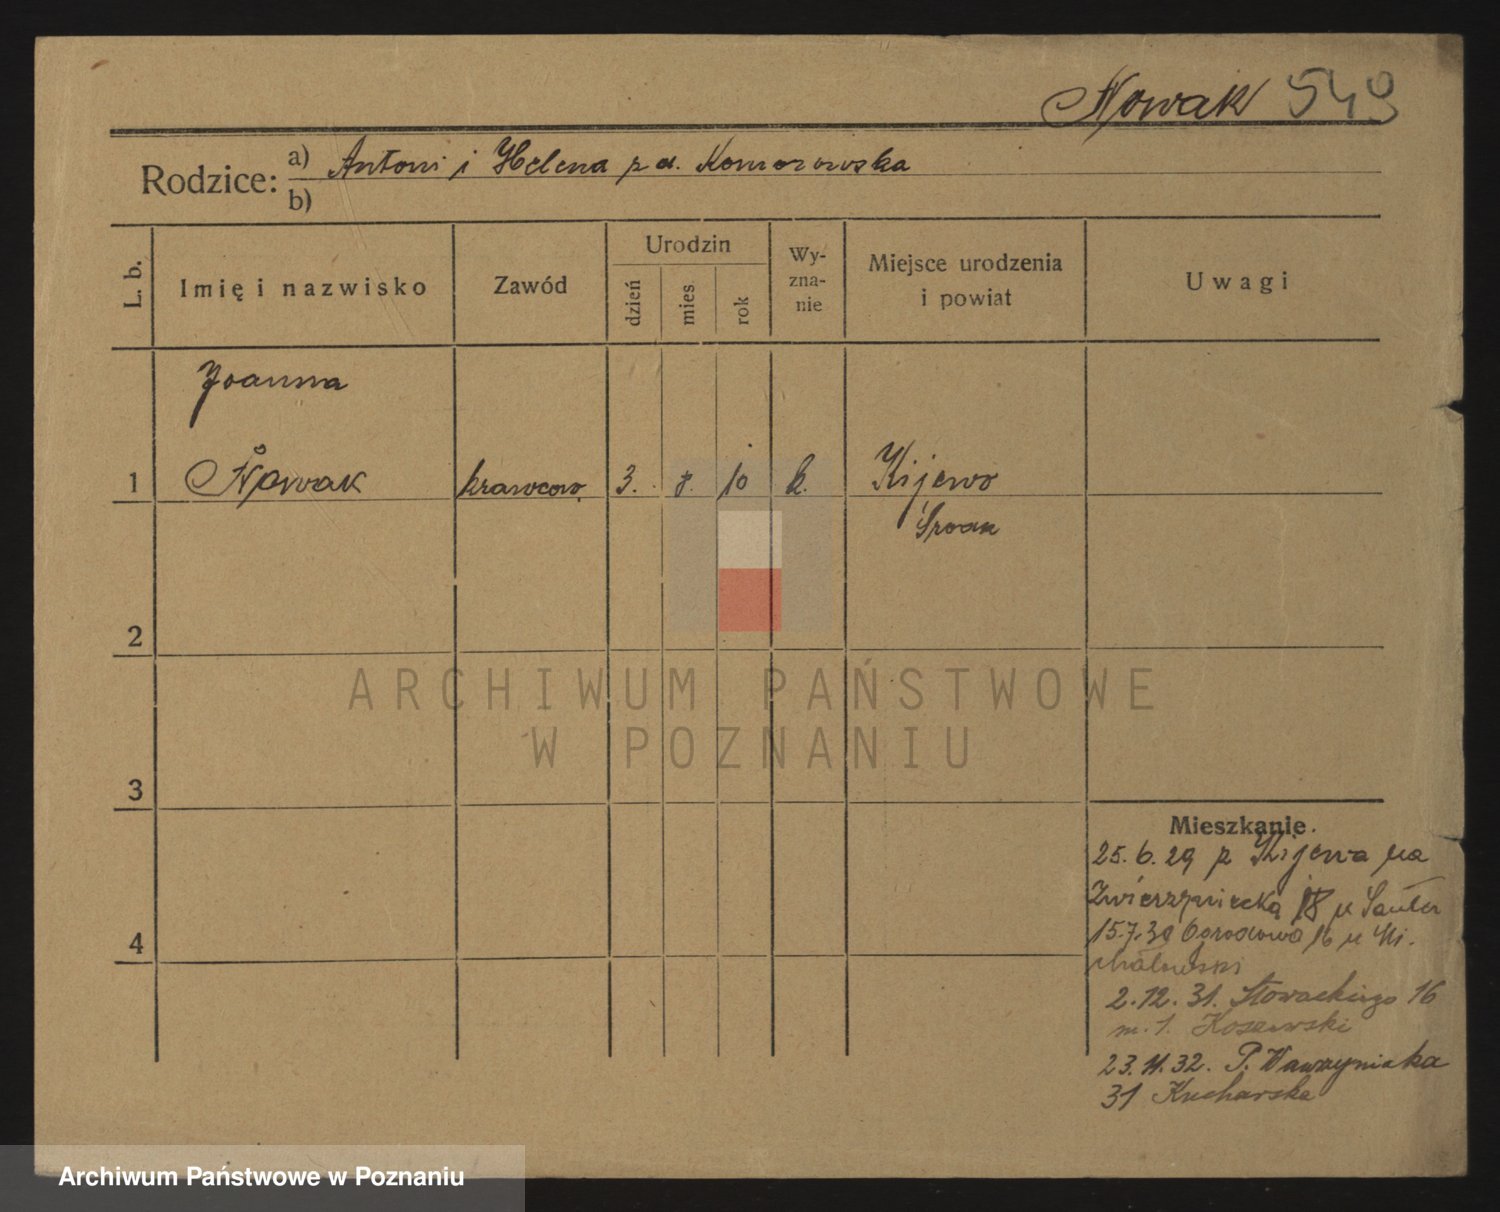 Nowak 549
Rodzice: a) Antoni i Helena z d. Komorowska
b)
L. b.
Imię i nazwisko
Zawód
Urodzin
dzień
mies
rok
Wy-
zna-
nie
Miejsce urodzenia
i powiat
Uwagi
Joanna
1 Nowak krawcow. 3. 8. 10 k. Kijewo
Środa
2
3
4
Mieszkanie.
25.6.29 z Kijewa na
Zwierzyniecką 18 u Sauter
15.7.30 Ogrodowa 16 u Mi-
chałowski
2.12.31. Słowackiego 16
m. 1. Koszewski
23.11.32. P. Wawrzyniaka
31 Kucharska
ARCHIWUM PAŃSTWOWE
W POZNANIU
Archiwum Państwowe w Poznaniu